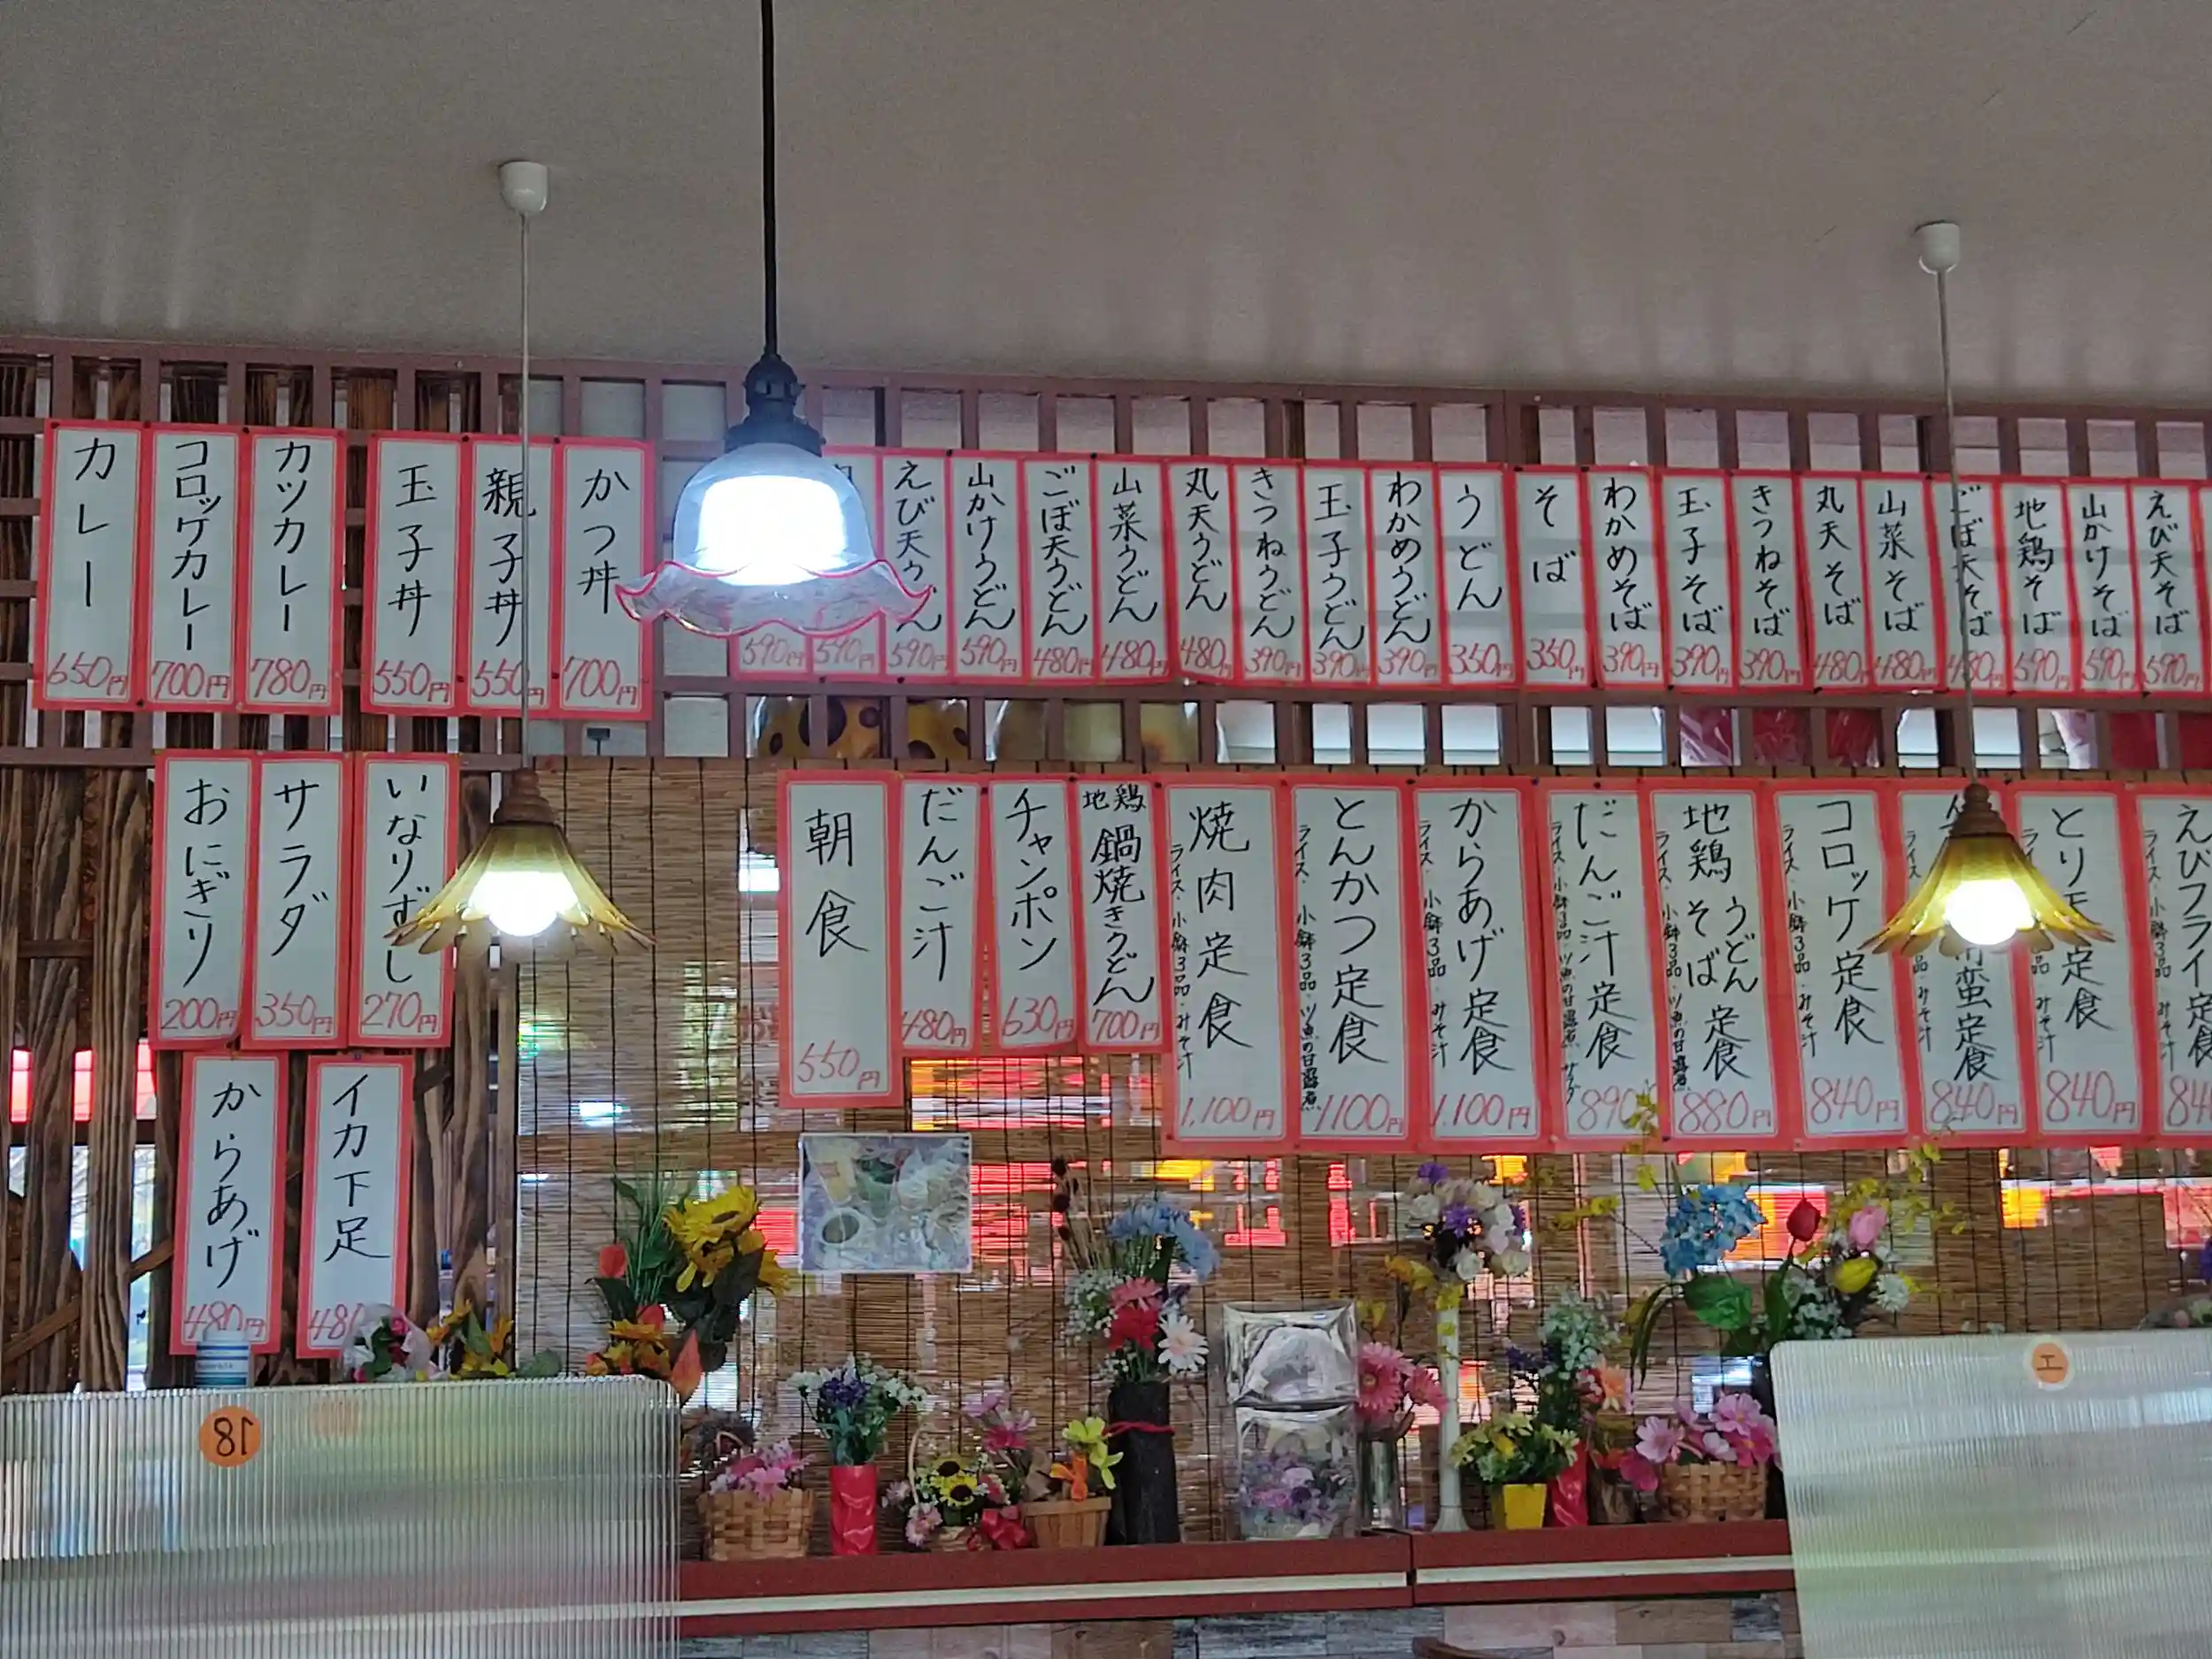 カレー 650円
コロッケカレー 700円
カツカレー 780円
玉子丼 550円
親子丼 550
かつ丼 700円
590円
590円
えび天うどん 590円
山かけうどん 590円
ごぼ天うどん 480円
山菜うどん 480円
丸天うどん 480円
きつねうどん 390円
玉子うどん 390円
わかめうどん 390円
うどん 350円
そば 350円
わかめそば 390円
玉子そば 390円
きつねそば 390円
丸天そば 480円
山菜そば 480円
ごぼ天そば 480円
地鶏そば 590円
山かけそば 590円
えび天そば 590円
おにぎり 200円
サラダ 350円
いなりずし 270円
朝食 550円
だんご汁 480円
チャンポン 630円
地鶏鍋焼きうどん 700円
焼肉定食 1,100円
ライス・小鉢3品・みそ汁
とんかつ定食 1100円
ライス・小鉢3品・ツ魚の甘露煮
からあげ定食 1.100円
ライス・小鉢3品・みそ汁
だんご汁定食 890
ライス・小鉢3品・ツ魚の甘露煮・サラダ
地鶏うどんそば定食 880円
ライス・小鉢3品・ツ魚の甘露煮
コロッケ定食 840円
ライス・小鉢3品・みそ汁
南蛮定食 840円
ライス 品・みそ汁
とり天定食 840円
ライス 品・みそ汁
えびフライ定食 84
ライス・小鉢3品・みそ汁
からあげ 480円
イカ下足 480
18
エ